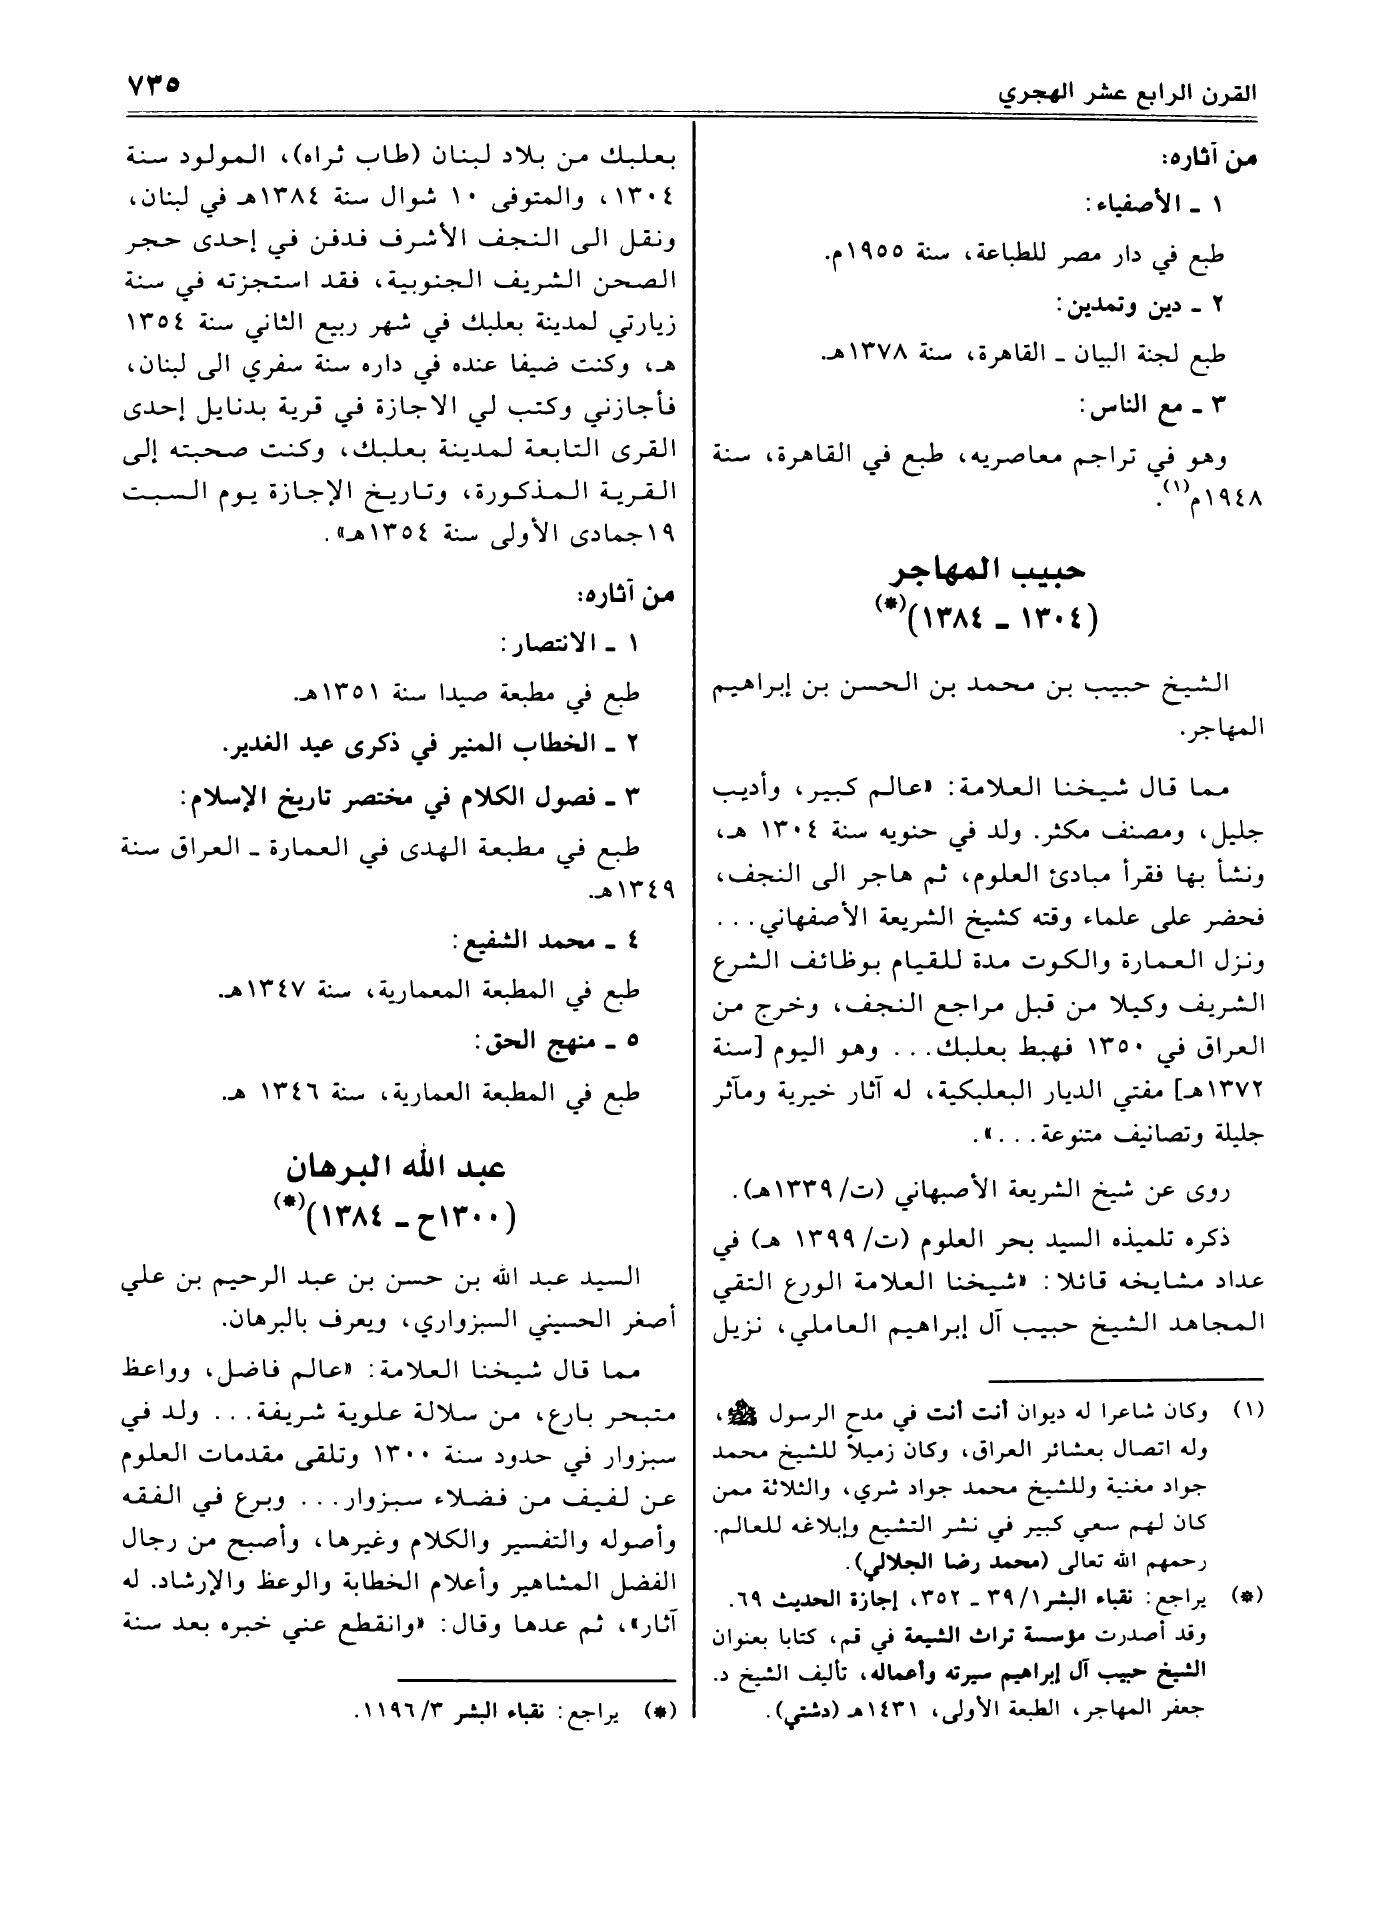 القرن الرابع عشر الهجري
٧٣٥
من آثاره:
١ ـ الأصفياء:
طبع في دار مصر للطباعة، سنة ١٩٥٥م.
٢ ـ دين وتمدين:
طبع لجنة البيان ـ القاهرة، سنة ١٣٧٨هـ.
٣ ـ مع الناس:
وهو في تراجم معاصريه، طبع في القاهرة، سنة
١٩٤٨م(١).
حبيب المهاجر
(١٣٠٤ ـ ١٣٨٤)(*)
الشيخ حبيب بن محمد بن الحسن بن إبراهيم
المهاجر.
مما قال شيخنا العلامة: «عالم كبير، وأديب
جليل، ومصنف مكثر. ولد في حنويه سنة ١٣٠٤ هـ،
ونشأ بها فقرأ مبادئ العلوم، ثم هاجر الى النجف،
فحضر على علماء وقته كشيخ الشريعة الأصفهاني...
ونزل العمارة والكوت مدة للقيام بوظائف الشرع
الشريف وكيلا من قبل مراجع النجف، وخرج من
العراق في ١٣٥٠ فهبط بعلبك... وهو اليوم [سنة
١٣٧٢هـ] مفتي الديار البعلبكية، له آثار خيرية ومآثر
جليلة وتصانيف متنوعة...».
روى عن شيخ الشريعة الأصبهاني (ت/ ١٣٣٩هـ).
ذكره تلميذه السيد بحر العلوم (ت/ ١٣٩٩ هـ) في
عداد مشايخه قائلا: «شيخنا العلامة الورع التقي
المجاهد الشيخ حبيب آل إبراهيم العاملي، نزيل
(١) وكان شاعرا له ديوان أنت أنت في مدح الرسول ﷺ،
وله اتصال بعشائر العراق، وكان زميلاً للشيخ محمد
جواد مغنية وللشيخ محمد جواد شري، والثلاثة ممن
كان لهم سعي كبير في نشر التشيع وإبلاغه للعالم.
رحمهم الله تعالى (محمد رضا الجلالي).
(*) يراجع: نقباء البشر ١/ ٣٩ ـ ٣٥٢، إجازة الحديث ٦٩.
وقد أصدرت مؤسسة تراث الشيعة في قم، كتابا بعنوان
الشيخ حبيب آل إبراهيم سيرته وأعماله، تأليف الشيخ د.
جعفر المهاجر، الطبعة الأولى، ١٤٣١هـ (دشتي).
بعلبك من بلاد لبنان (طاب ثراه)، المولود سنة
١٣٠٤، والمتوفى ١٠ شوال سنة ١٣٨٤هـ في لبنان،
ونقل الى النجف الأشرف فدفن في إحدى حجر
الصحن الشريف الجنوبية، فقد استجزته في سنة
زيارتي لمدينة بعلبك في شهر ربيع الثاني سنة ١٣٥٤
هـ، وكنت ضيفا عنده في داره سنة سفري الى لبنان،
فأجازني وكتب لي الاجازة في قرية بدنايل إحدى
القرى التابعة لمدينة بعلبك، وكنت صحبته إلى
القرية المذكورة، وتاريخ الإجازة يوم السبت
١٩جمادى الأولى سنة ١٣٥٤هـ».
من آثاره:
١ ـ الانتصار:
طبع في مطبعة صيدا سنة ١٣٥١هـ.
٢ ـ الخطاب المنير في ذكرى عيد الغدير.
٣ ـ فصول الكلام في مختصر تاريخ الإسلام:
طبع في مطبعة الهدى في العمارة ـ العراق سنة
١٣٤٩هـ.
٤ ـ محمد الشفيع:
طبع في المطبعة المعمارية، سنة ١٣٤٧هـ.
٥ ـ منهج الحق:
طبع في المطبعة العمارية، سنة ١٣٤٦ هـ.
عبد الله البرهان
(١٣٠٠ح ـ ١٣٨٤)(*)
السيد عبد الله بن حسن بن عبد الرحيم بن علي
أصغر الحسيني السبزواري، ويعرف بالبرهان.
مما قال شيخنا العلامة: «عالم فاضل، وواعظ
متبحر بارع، من سلالة علوية شريفة... ولد في
سبزوار في حدود سنة ١٣٠٠ وتلقى مقدمات العلوم
عن لفيف من فضلاء سبزوار... وبرع في الفقه
وأصوله والتفسير والكلام وغيرها، وأصبح من رجال
الفضل المشاهير وأعلام الخطابة والوعظ والإرشاد. له
آثار»، ثم عدها وقال: «وانقطع عني خبره بعد سنة
(*) يراجع: نقباء البشر ٣/ ١١٩٦.